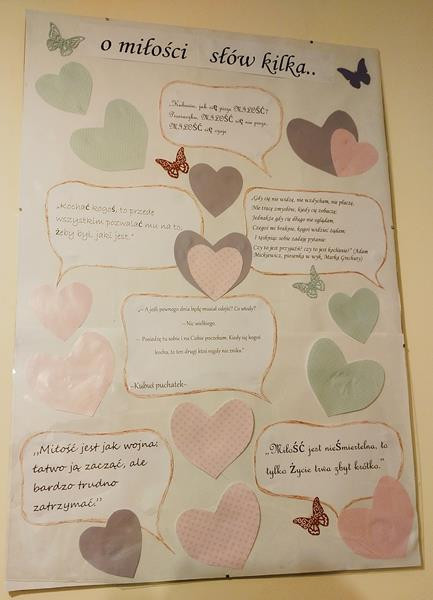 o miłości słów kilka..
„Kubusiu, jak się pisze MIŁOŚĆ?
Prosiaczku, MIŁOŚĆ się nie pisze,
MIŁOŚĆ się czuje
„Kochać kogoś, to przede
wszystkim pozwalać mu na to,
żeby był, jaki jest.”
„Gdy cię nie widzę, nie wzdycham, nie płaczę,
Nie tracę zmysłów, kiedy cię zobaczę;
Jednakże gdy cię długo nie oglądam,
Czegoś mi braknie, kogoś widzieć żądam;
I tęskniąc sobie zadaję pytanie:
Czy to jest przyjaźń? czy to jest kochanie?” (Adam
Mickiewicz, piosenka w wyk. Marka Grechuty)
„– A jeśli pewnego dnia będę musiał odejść? Co wtedy?
– Nic wielkiego.
– Posiedzę tu sobie i na Ciebie poczekam. Kiedy się kogoś
kocha, to ten drugi ktoś nigdy nie znika.”
~Kubuś puchatek~
„Miłość jest jak wojna:
łatwo ją zacząć, ale
bardzo trudno
zatrzymać.”
„Miłość jest nieśmiertelna, to
tylko życie trwa zbyt krótko.”